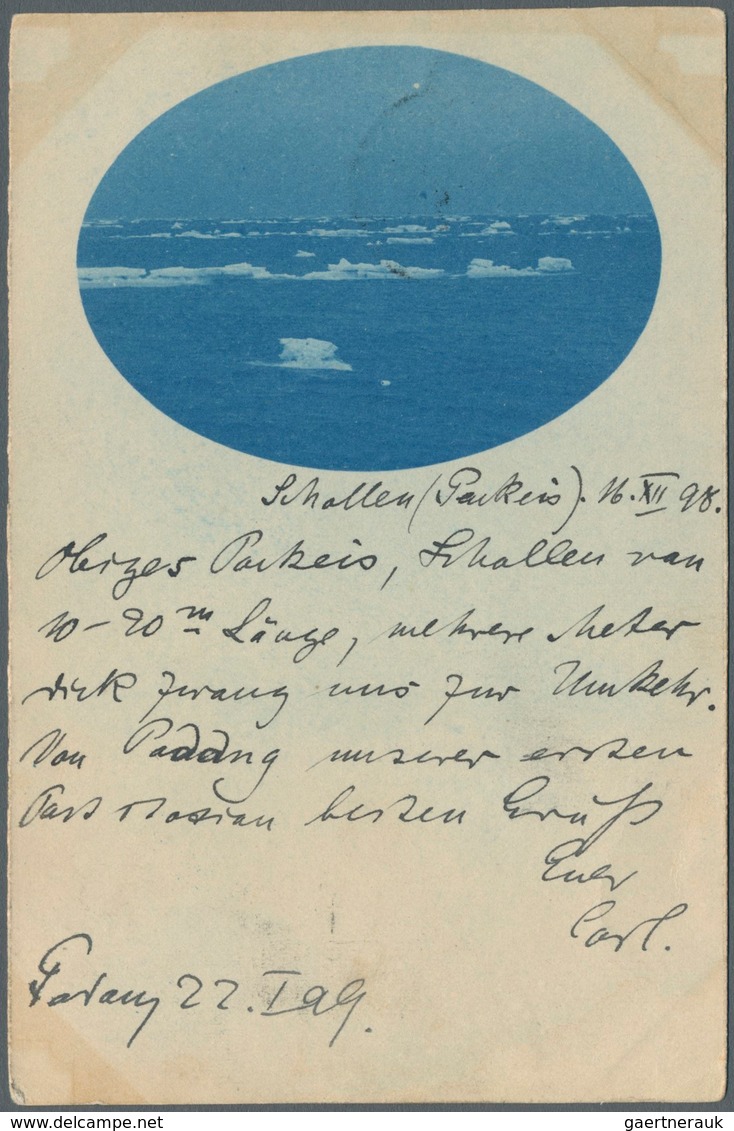 Schollen (Packeis). 16. XII 98.
Obiges Packeis, Schollen von
10-20 m Länge, mehrere Meter
dick zwang uns zur Umkehr.
Von Padang unserer ersten
Poststation besten Gruß
Euer
Carl.
Padang 22. I 99.
delcampe.net
gaertnerauk